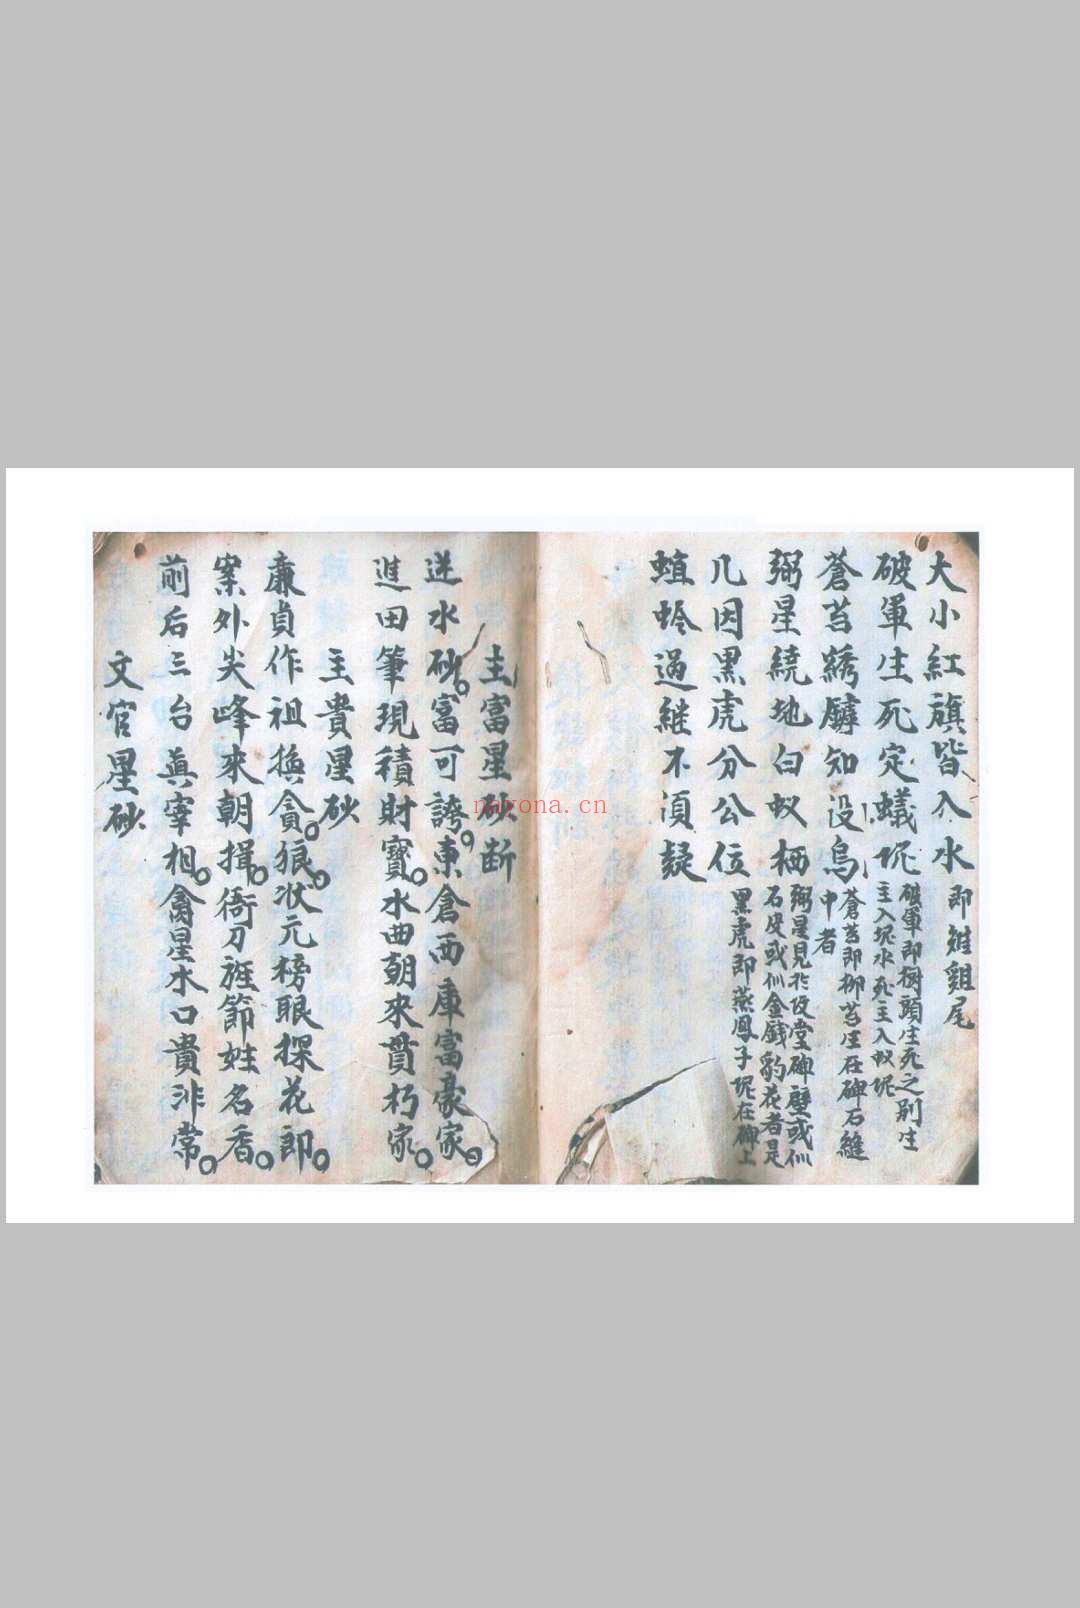 大小紅旗皆入水 即雉雞尾
破軍生死定蟻坭 破軍即樹頭生死之别生
主入坭水死主入蚁坭
蒼苔綉 知没烏 蒼苔即柳 生在碑石縫
中者
弼星繞地白蚁栖 弼星見於 堂碑壁或似
石皮或似金錢豹花者是
几因黑虎分公位 黑虎即燕鳳子坭在碑上
蛉過継不湏疑
主富星砂断
逆水砂富可誇東倉西庫富豪家
進田筆現積財寳水曲朝來貫朽家
主貴星砂
廉貞作祖換貪狼状元榜眼探花郎
案外尖峰來朝揖衙刀旌節姓名香
前后三台眞宰相禽星水口貴非常
文官星砂
nayona.cn